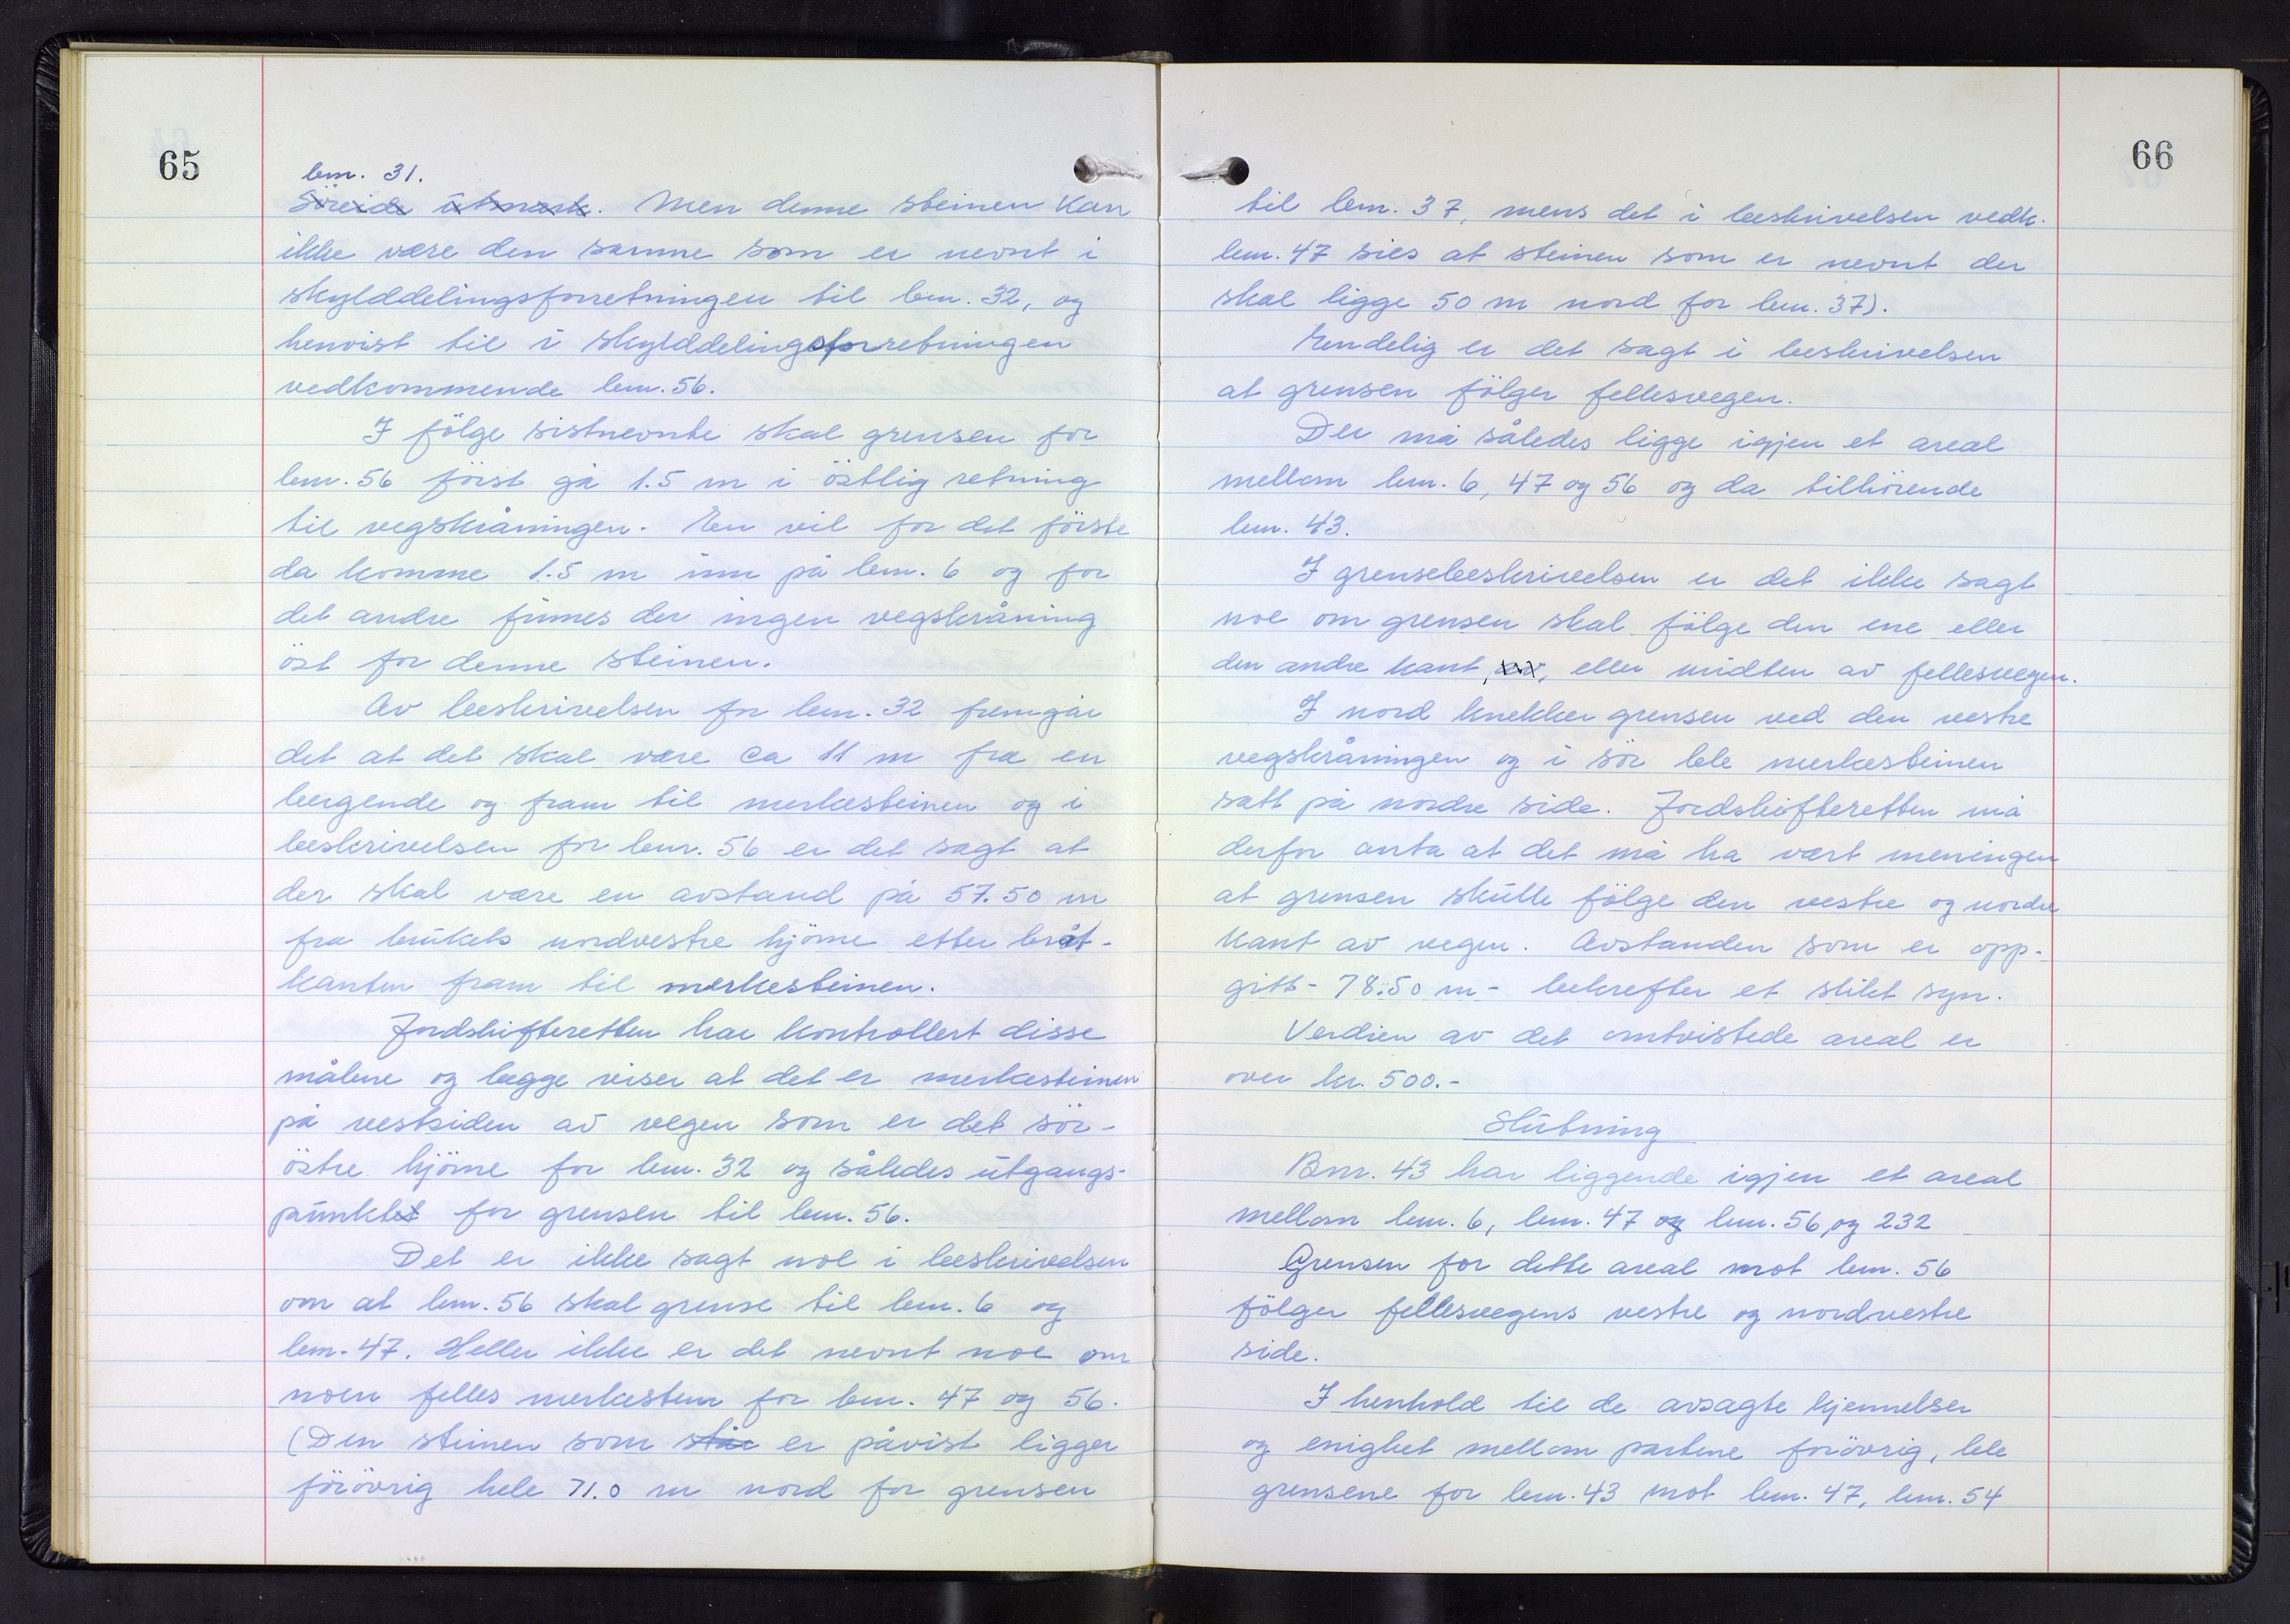 65
bnr. 31.
Söreide utmark. Men denne steinen kan
ikke være den samme som er nevnt i
skylddelingsforretningen til bnr. 32, og
henvist til i skylddelingsforretningen
vedkommende bnr. 56.
I fölge sistnevnte skal grensen for
bnr. 56 först gå 1.5 m i östlig retning
til vegskråningen. En vil for det förste
da komme 1.5 m inn på bnr. 6 og for
det andre finnes der ingen vegskråning
öst for denne steinen.
Av beskrivelsen for bnr. 32 fremgår
det at det skal være ca 11 m fra en
bergende og fram til merkesteinen og i
beskrivelsen for bnr. 56 er det sagt at
der skal være en avstand på 57.50 m
fra brukets nordvestre hjörne etter bråt-
kanten fram til merkesteinen.
Jordskifteretten har kontrollert disse
målene og begge viser at det er merkesteinen
på vestsiden av vegen som er det sör-
östre hjörne for bnr. 32 og således utgangs-
punktet for grensen til bnr. 56.
Det er ikke sagt noe i beskrivelsen
om at bnr. 56 skal grense til bnr. 6 og
bnr. 47. Heller ikke er det nevnt noe om
noen felles merkestein for bnr. 47 og 56.
(Den steinen som står er påvist ligger
forövrig hele 71.0 m nord for grensen
66
til bnr. 37, mens det i beskrivelsen vedk.
bnr. 47 sies at steinen som er nevnt der
skal ligge 50 m nord for bnr. 37).
Endelig er det sagt i beskrivelsen
at grensen fölger fellesvegen.
Der må således ligge igjen et areal
mellom bnr. 6, 47 og 56 og da tilhörende
bnr. 43.
I grensebeskrivelsen er det ikke sagt
noe om grensen skal fölge den ene eller
den andre kant, av, eller midten av fellesvegen.
I nord knekker grensen ved den vestre
vegskråningen og i sör ble merkesteinen
satt på nordre side. Jordskifteretten må
derfor anta at det må ha vært meningen
at grensen skulle fölge den vestre og nordre
kant av vegen. Avstanden som er opp-
gitt - 78.50 m - bekrefter et slikt syn.
Verdien av det omtvistede areal er
over kr. 500.-
Slutning
Bnr. 43 har liggende igjen et areal
mellom bnr. 6, bnr. 47 og bnr. 56 og 232
Grensen for dette areal mot bnr. 56
fölger fellesvegens vestre og nordvestre
side.
I henhold til de avsagte kjennelser
og enighet mellom partene forövrig, ble
grensene for bnr. 43 mot bnr. 47, bnr. 54